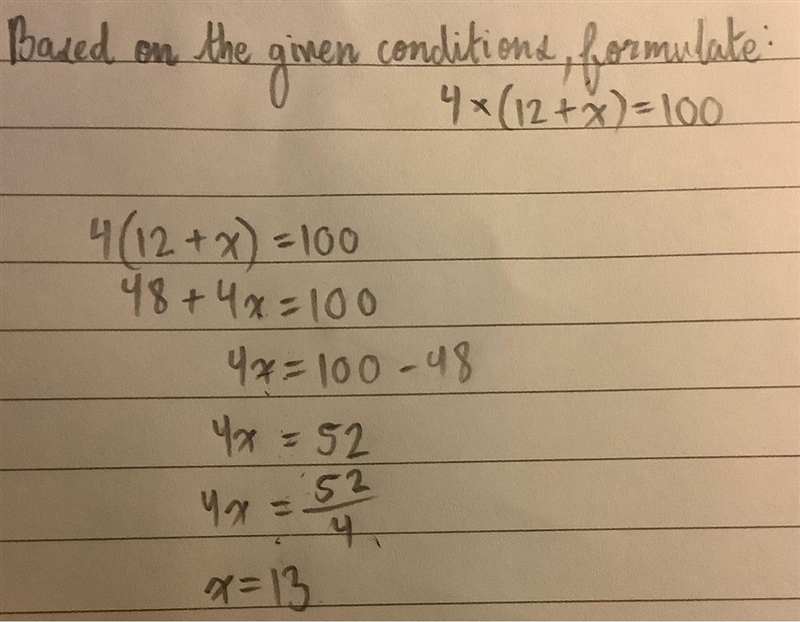 Based on the given conditions, formulate:
4×(12+x)=100
4(12+x)=100
48+4x=100
4x=100-48
4x=52
4x=52/4
x=13